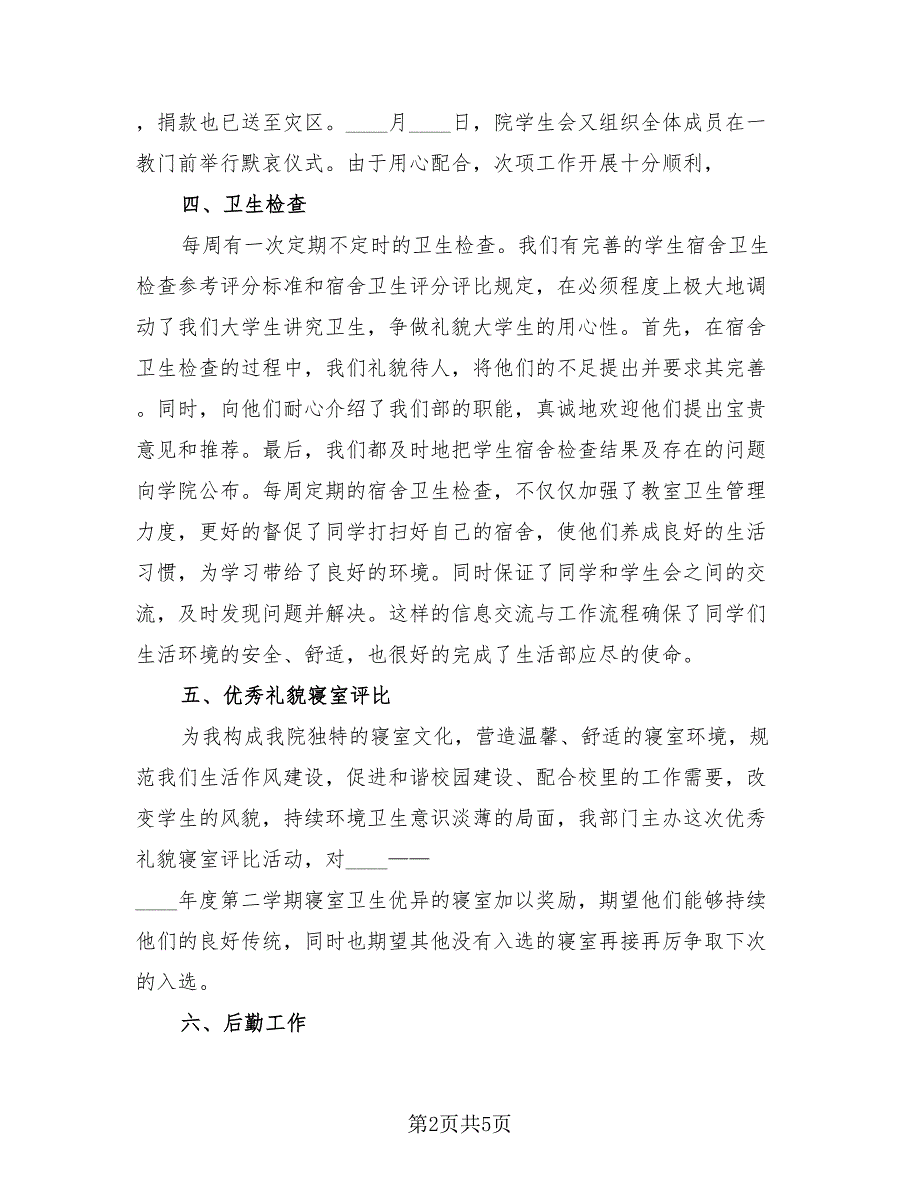 ，捐款也已送至灾区。____月____日，院学生会又组织全体成员在一
教门前举行默哀仪式。由于用心配合，次项工作开展十分顺利，
四、卫生检查
每周有一次定期不定时的卫生检查。我们有完善的学生宿舍卫生
检查参考评分标准和宿舍卫生评分评比规定，在必须程度上极大地调
动了我们大学生讲究卫生，争做礼貌大学生的用心性。首先，在宿舍
卫生检查的过程中，我们礼貌待人，将他们的不足提出并要求其完善
。同时，向他们耐心介绍了我们部的职能，真诚地欢迎他们提出宝贵
意见和推荐。最后，我们都及时地把学生宿舍检查结果及存在的问题
向学院公布。每周定期的宿舍卫生检查，不仅仅加强了教室卫生管理
力度，更好的督促了同学打扫好自己的宿舍，使他们养成良好的生活
习惯，为学习带给了良好的环境。同时保证了同学和学生会之间的交
流，及时发现问题并解决。这样的信息交流与工作流程确保了同学们
生活环境的安全、舒适，也很好的完成了生活部应尽的使命。
五、优秀礼貌寝室评比
为我构成我院独特的寝室文化，营造温馨、舒适的寝室环境，规
范我们生活作风建设，促进和谐校园建设、配合校里的工作需要，改
变学生的风貌，持续环境卫生意识淡薄的局面，我部门主办这次优秀
礼貌寝室评比活动，对____——
____年度第二学期寝室卫生优异的寝室加以奖励，期望他们能够持续
他们的良好传统，同时也期望其他没有入选的寝室再接再厉争取下次
的入选。
六、后勤工作
第2页共5页